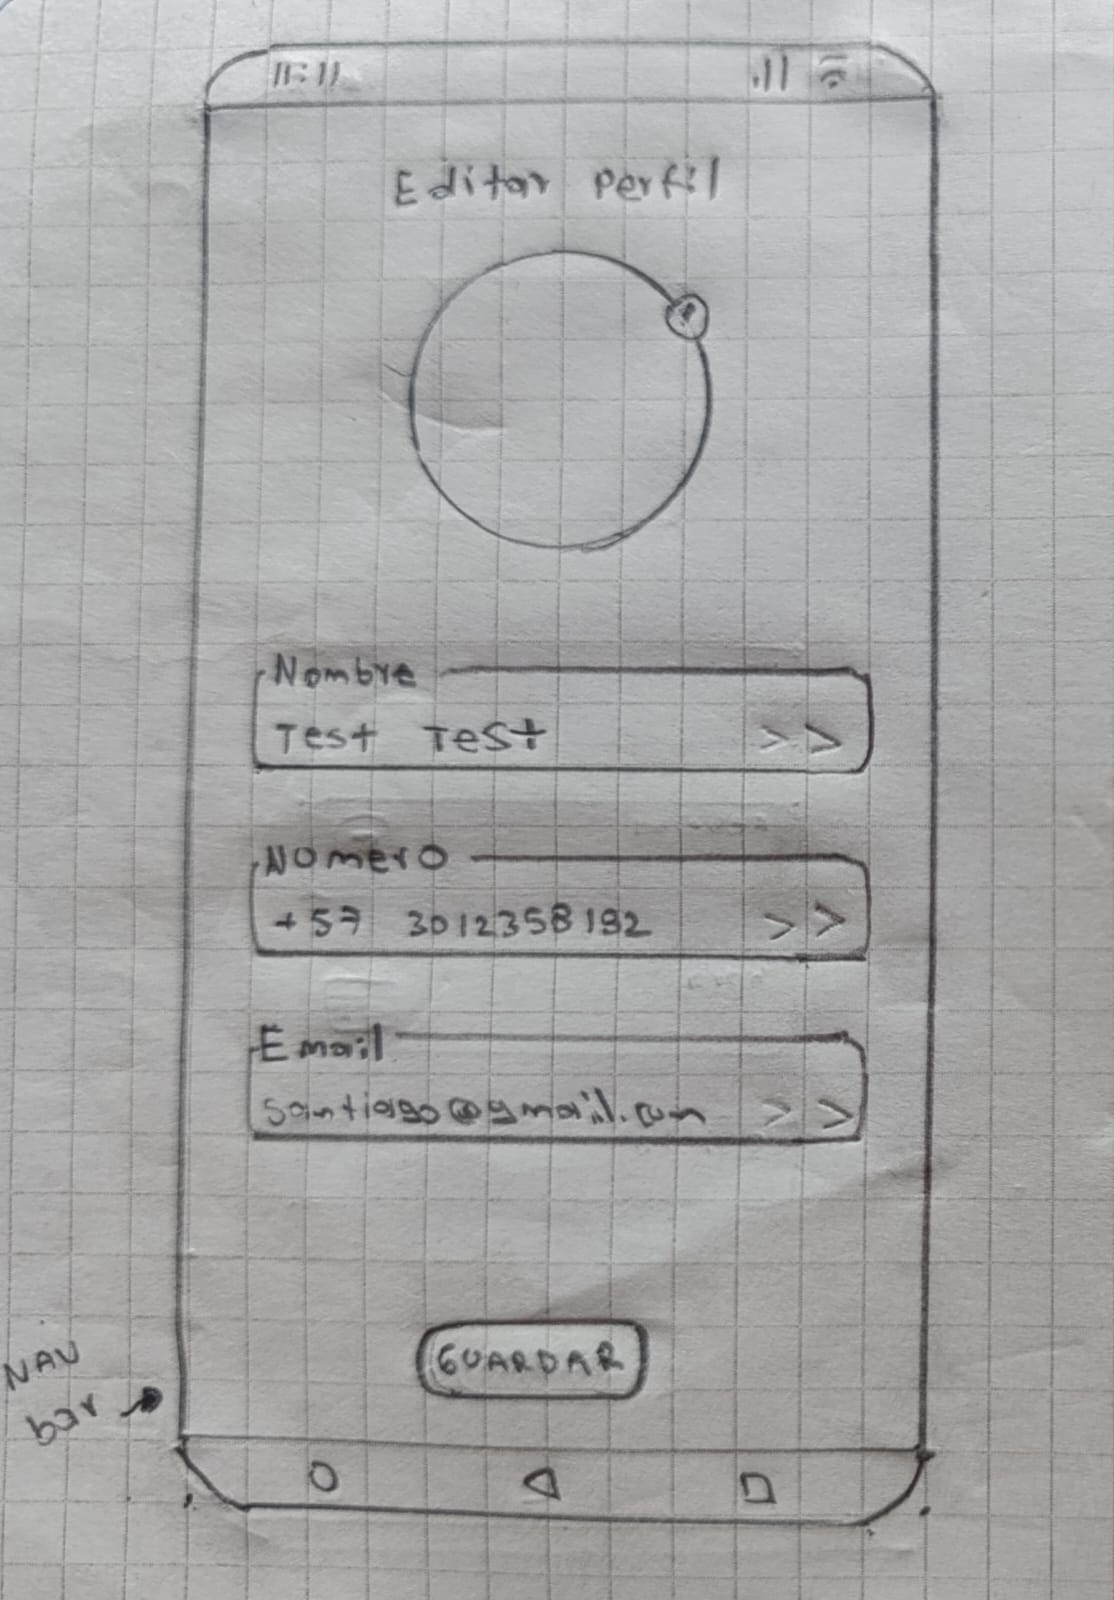 11:11
Editar Perfil
Nombre
Test Test >>
Nomero
+57 3012358192 >>
Email
santiago@gmail.com >>
GUARDAR
NAV
bar